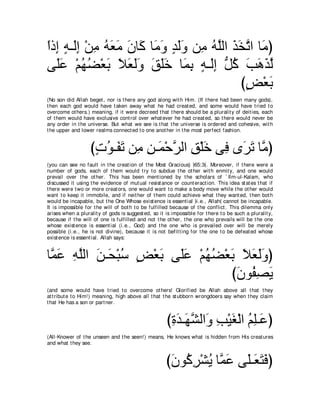 (مَا اتَّخَذَ اللَّهُ مِن وَلَدٍ وَمَا كَانَ مَعَهُ مِنْ إِلَـهٍ إِذاً
لَّذَهَبَ كُلُّ إِلَـهٍ بِمَا خَلَقَ وَلَعَلاَ بَعْضُهُمْ عَلَى
بَعْضٍ)
(No son did Allah beget, nor is there any god along with Him. (If there had been many gods),
then each god would have taken away what he had created, and some would have tried to
overcome others.) meaning, if it were decreed that there should be a plurality of deities, each
of them would have exclusive control over whatever he had created, so there would never be
any order in the universe. But what we see is that the universe is ordered and cohesive, with
the upper and lower realms connected to one another in the most perfect fashion.
(مَّا تَرَى فِى خَلْقِ الرَّحْمَـنِ مِن تَفَـوُتٍ)
(you can see no fault in the creation of the Most Gracious) (65:3). Moreover, if there were a
number of gods, each of them would try to subdue the other with enmity, and one would
prevail over the other. This has been mentioned by the scholars of `Ilm-ul-Kalam, who
discussed it using the evidence of mutual resistance or counteraction. This idea states that if
there were two or more creators, one would want to make a body move while the other would
want to keep it immobile, and if neither of them could achieve what they wanted, then both
would be incapable, but the One Whose existence is essential [i.e., Allah] cannot be incapable.
It is impossible for the will of both to be fulfilled because of the conflict. This dilemma only
arises when a plurality of gods is suggested, so it is impossible for there to be such a plurality,
because if the will of one is fulfilled and not the other, the one who prevails will be the one
whose existence is essential (i.e., God) and the one who is prevailed over will be merely
possible (i.e., he is not divine), because it is not befitting for the one to be defeated whose
existence is essential. Allah says:
(وَلَعَلاَ بَعْضُهُمْ عَلَى بَعْضٍ سُبْحَـنَ اللَّهِ عَمَّا
يَصِفُونَ)
(and some would have tried to overcome others! Glorified be Allah above all that they
attribute to Him!) meaning, high above all that the stubborn wrongdoers say when they claim
that He has a son or partner.
(عَـلِمِ الْغَيْبِ وَالشَّهَـدَةِ)
(All-Knower of the unseen and the seen!) means, He knows what is hidden from His creatures
and what they see.
(فَتَعَـلَى عَمَّا يُشْرِكُونَ)